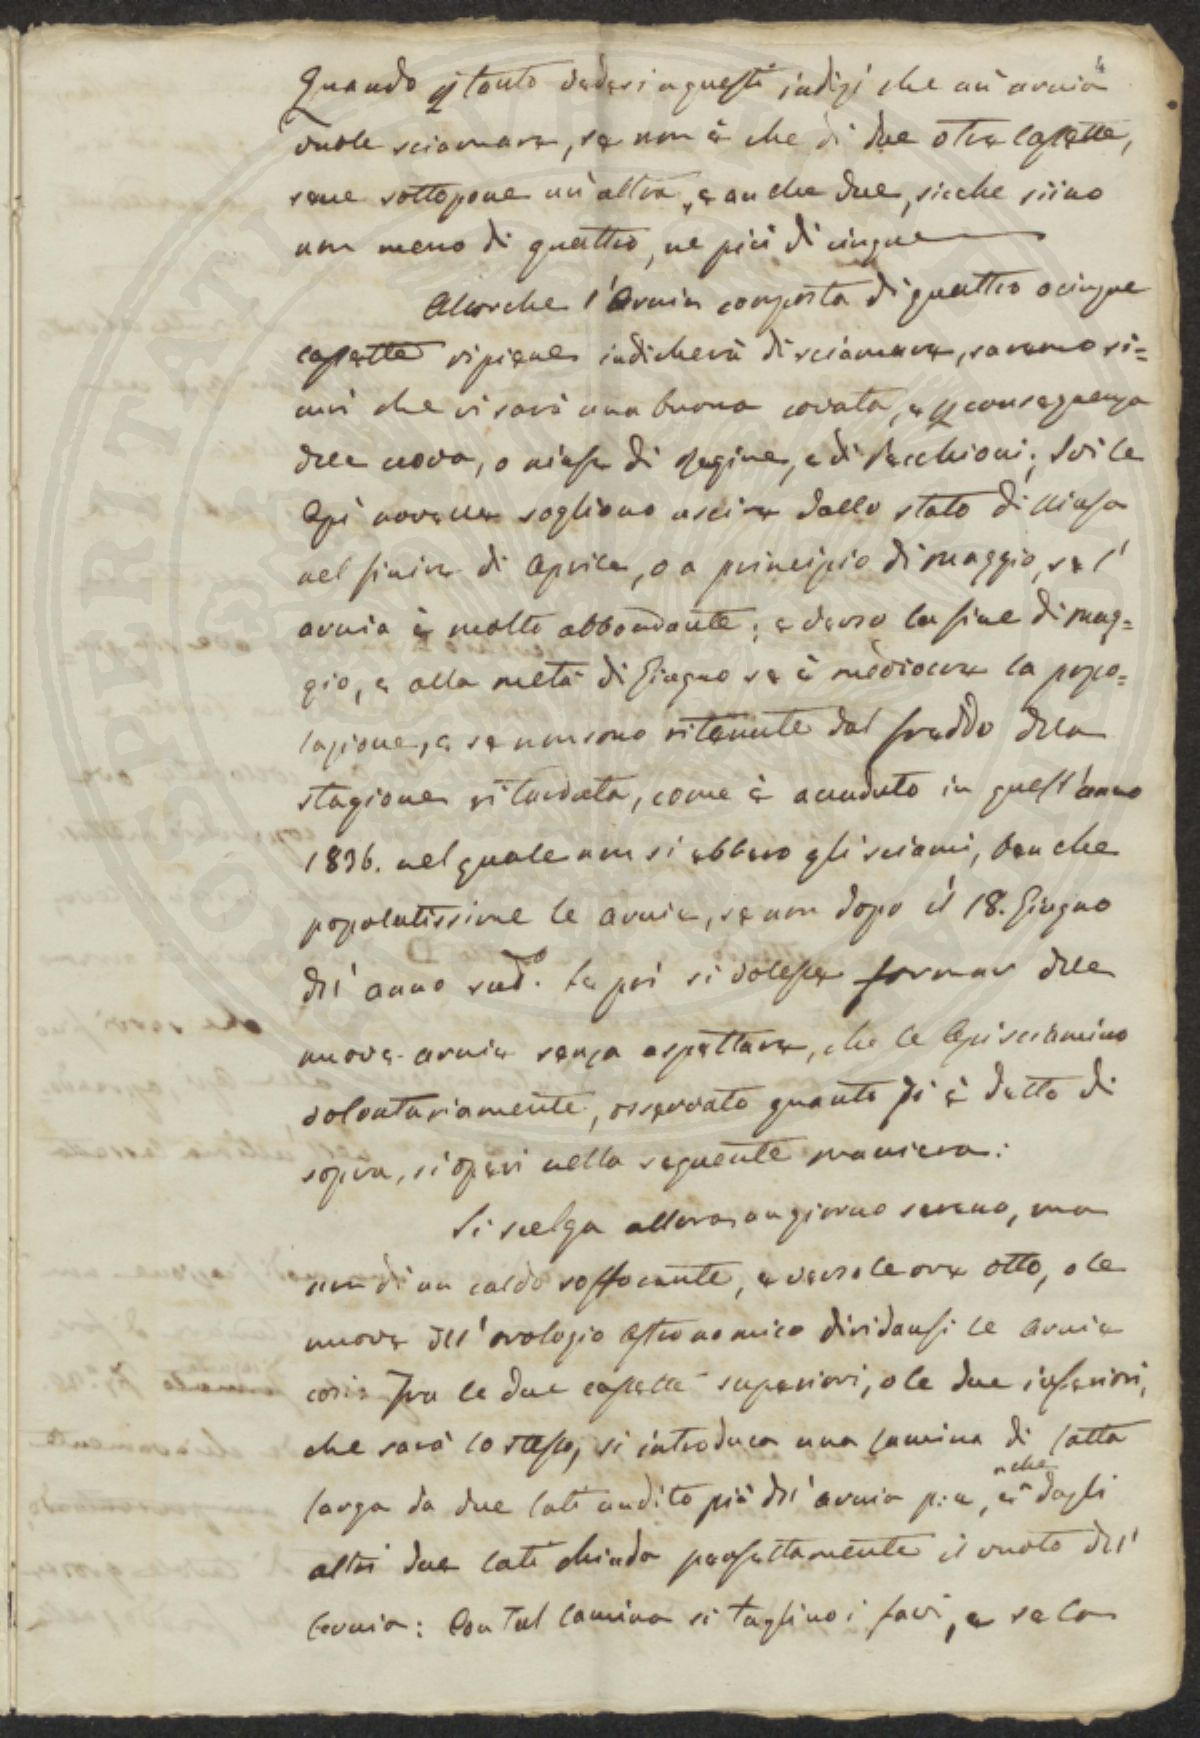 4
Quando ptanto vedesi a questi indizj che un'arnia
vuole sciamare, se non è che di due o tre cassette,
sene sottopone un'altra, e anche due, sicche siino
non meno di quattro, ne più di cinque
Allorche l'Arnia composta di quattro o cinque
cassette ripiene indicherà di sciamare, saremo si=
curi che vi sarà una buona covata, e p conseguenza
delle uova, o ninfe di Regine, e di Pecchioni; Se le
Api novelle sogliono uscire dallo stato di Ninfa
nel finire di Aprile, o a principio di Maggio, se l'
arnia è molto abbondante; e verso la fine di Mag=
gio, e alla metà di Giugno se è mediocre la popo=
lazione, e se non sono ritenute dal freddo della
stagione ritardata, come è accaduto in quest'anno
1836. nel quale non si ebbero gli sciami, benche
popolatissime le arnie, se non dopo il 18. Giugno
dell'anno sudo. Se poi si volesse formar delle
nuove arnie senza aspettare, che le Api sciamino
volontariamente, osservato quanto si è detto di
sopra, si operi nella seguente maniera:
Si scelga allora un giorno sereno, ma
non di un caldo soffocante, e verso le ore otto, o le
nuove dell'orologio Astronomico dividansi le Arnie
così: Fra le due cassette superiori, o le due inferiori,
che sarà lo stesso, si introduca una lamina di latta
larga da due lati undito più dell'arnia p: e, anche dagli
altri due lati chiuda perfettamente il vuoto dell'
Arnia: Con tal lamina si taglino i favi, e se la